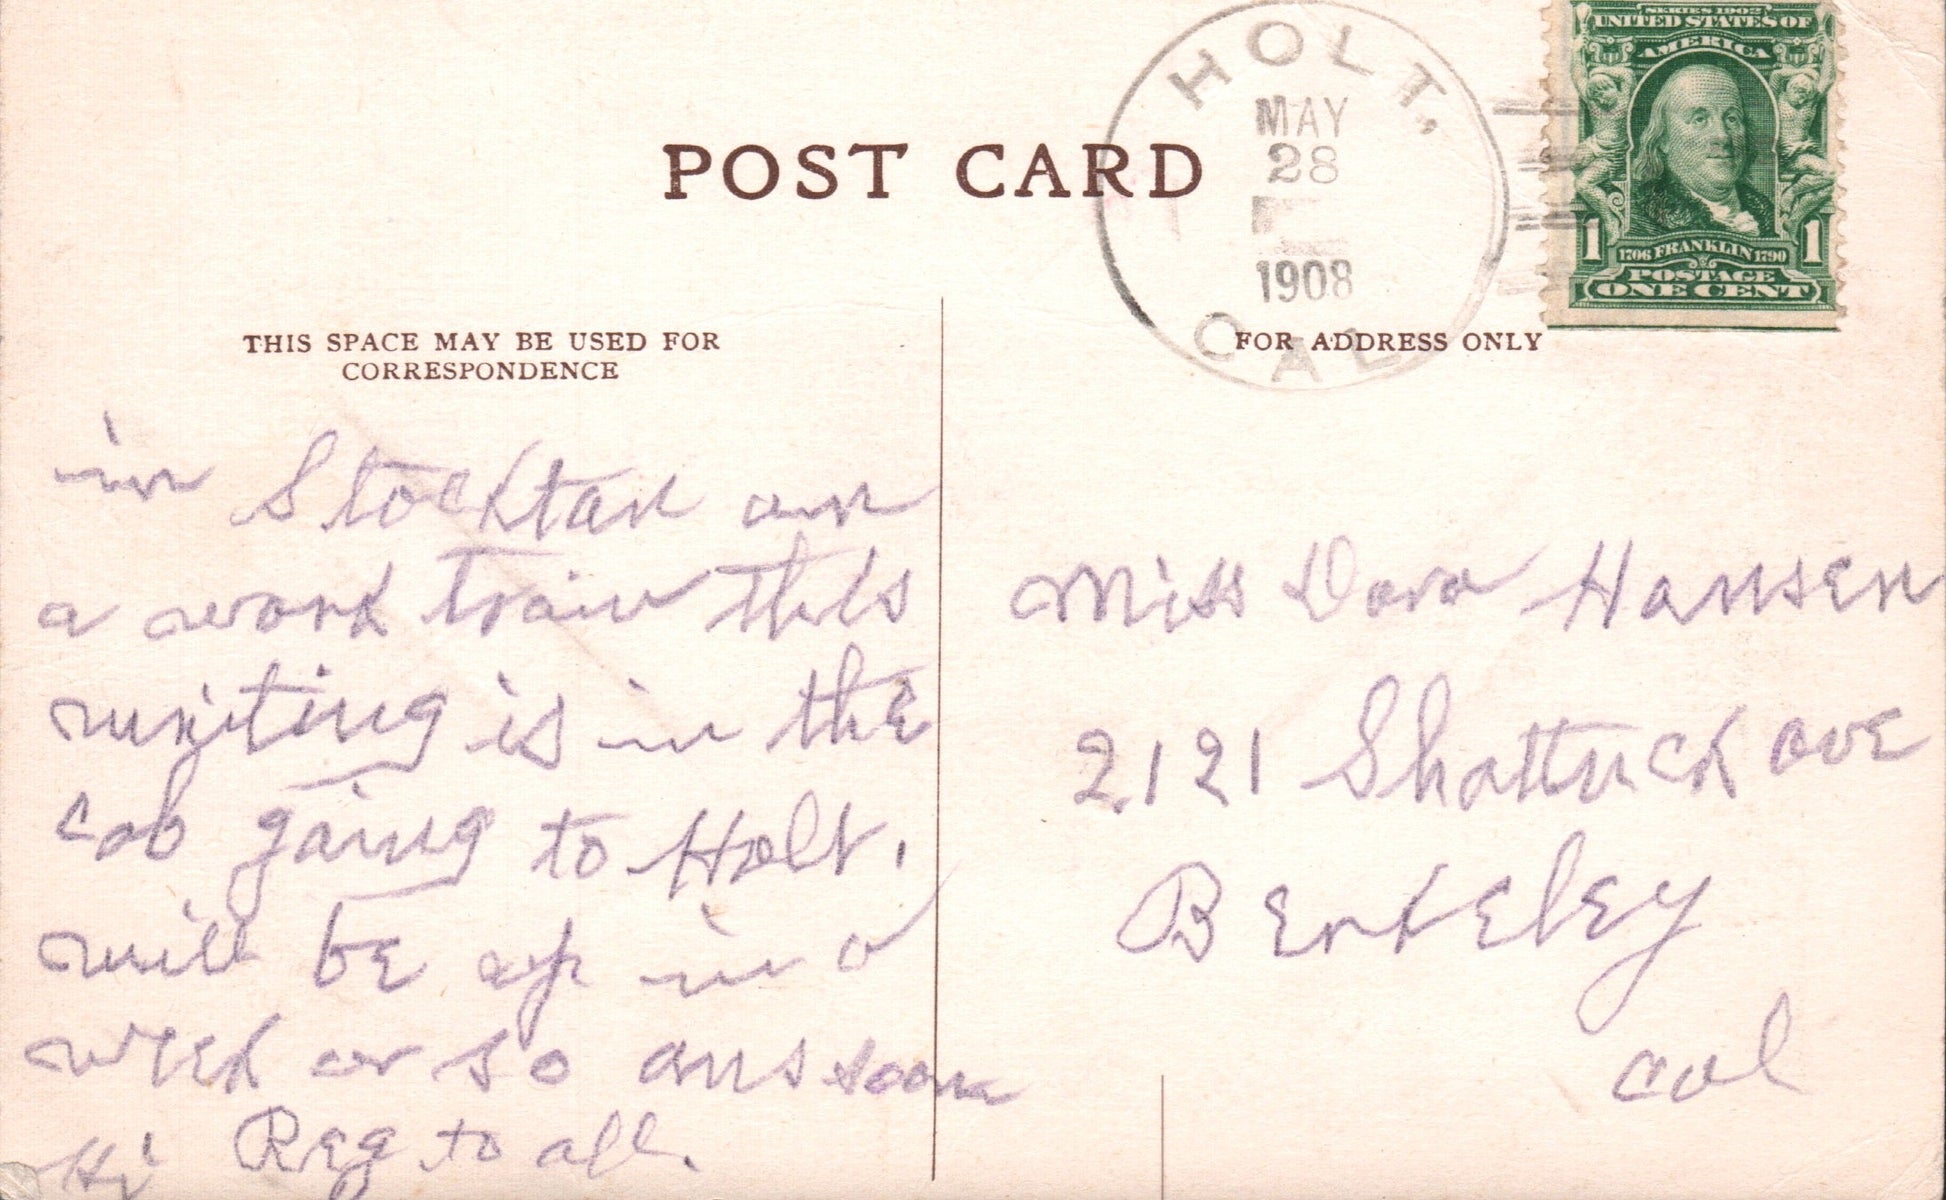 POST CARD
HOLT,
MAY
28
1908
CAL
SERIES 1902
UNITED STATES OF
AMERICA
1 1706 FRANKLIN 1790 1
POSTAGE
ONE CENT
THIS SPACE MAY BE USED FOR
CORRESPONDENCE
FOR ADDRESS ONLY
in Stockton on
a work train this
writing is in the
cab going to Holt.
will be up in a
week or so ans soon
Reg to all.
Miss Dora Hansen
2121 Shattuck ave
Berkeley
Cal